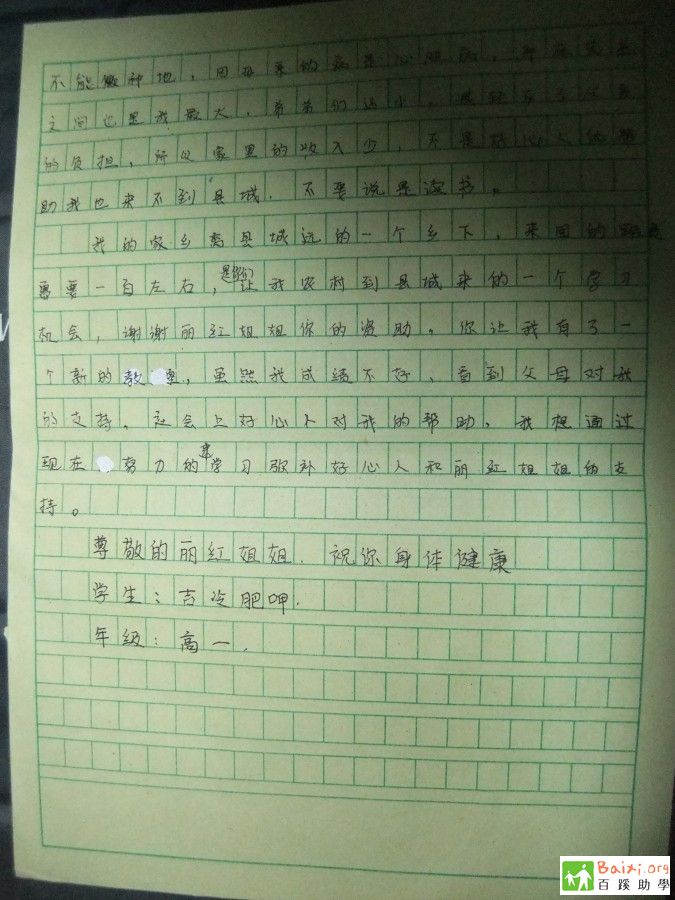 不能做种地,因母亲的病是心脏病,
之间也是我最大,弟弟们还小,
的负担,所以家里的收入少,不是好心人的帮
助我也来不到县城.不要说是读书。
我的家乡离县城远的一个乡下,来回的
需要一百左右,是你们让我农村到县城来的一个学习
机会,谢谢丽红姐姐你的资助。你让我有了一
个新的教室,虽然我成绩不好,看到父母对我
的支持,社会上好心人对我的帮助,我想通过
现在努力的学习弥补好心人和丽红姐姐的支
持。
尊敬的丽红姐姐.祝你身体健康
学生:吉冷肥呷.
年级:高一.
Baixi.org
百蹊助學